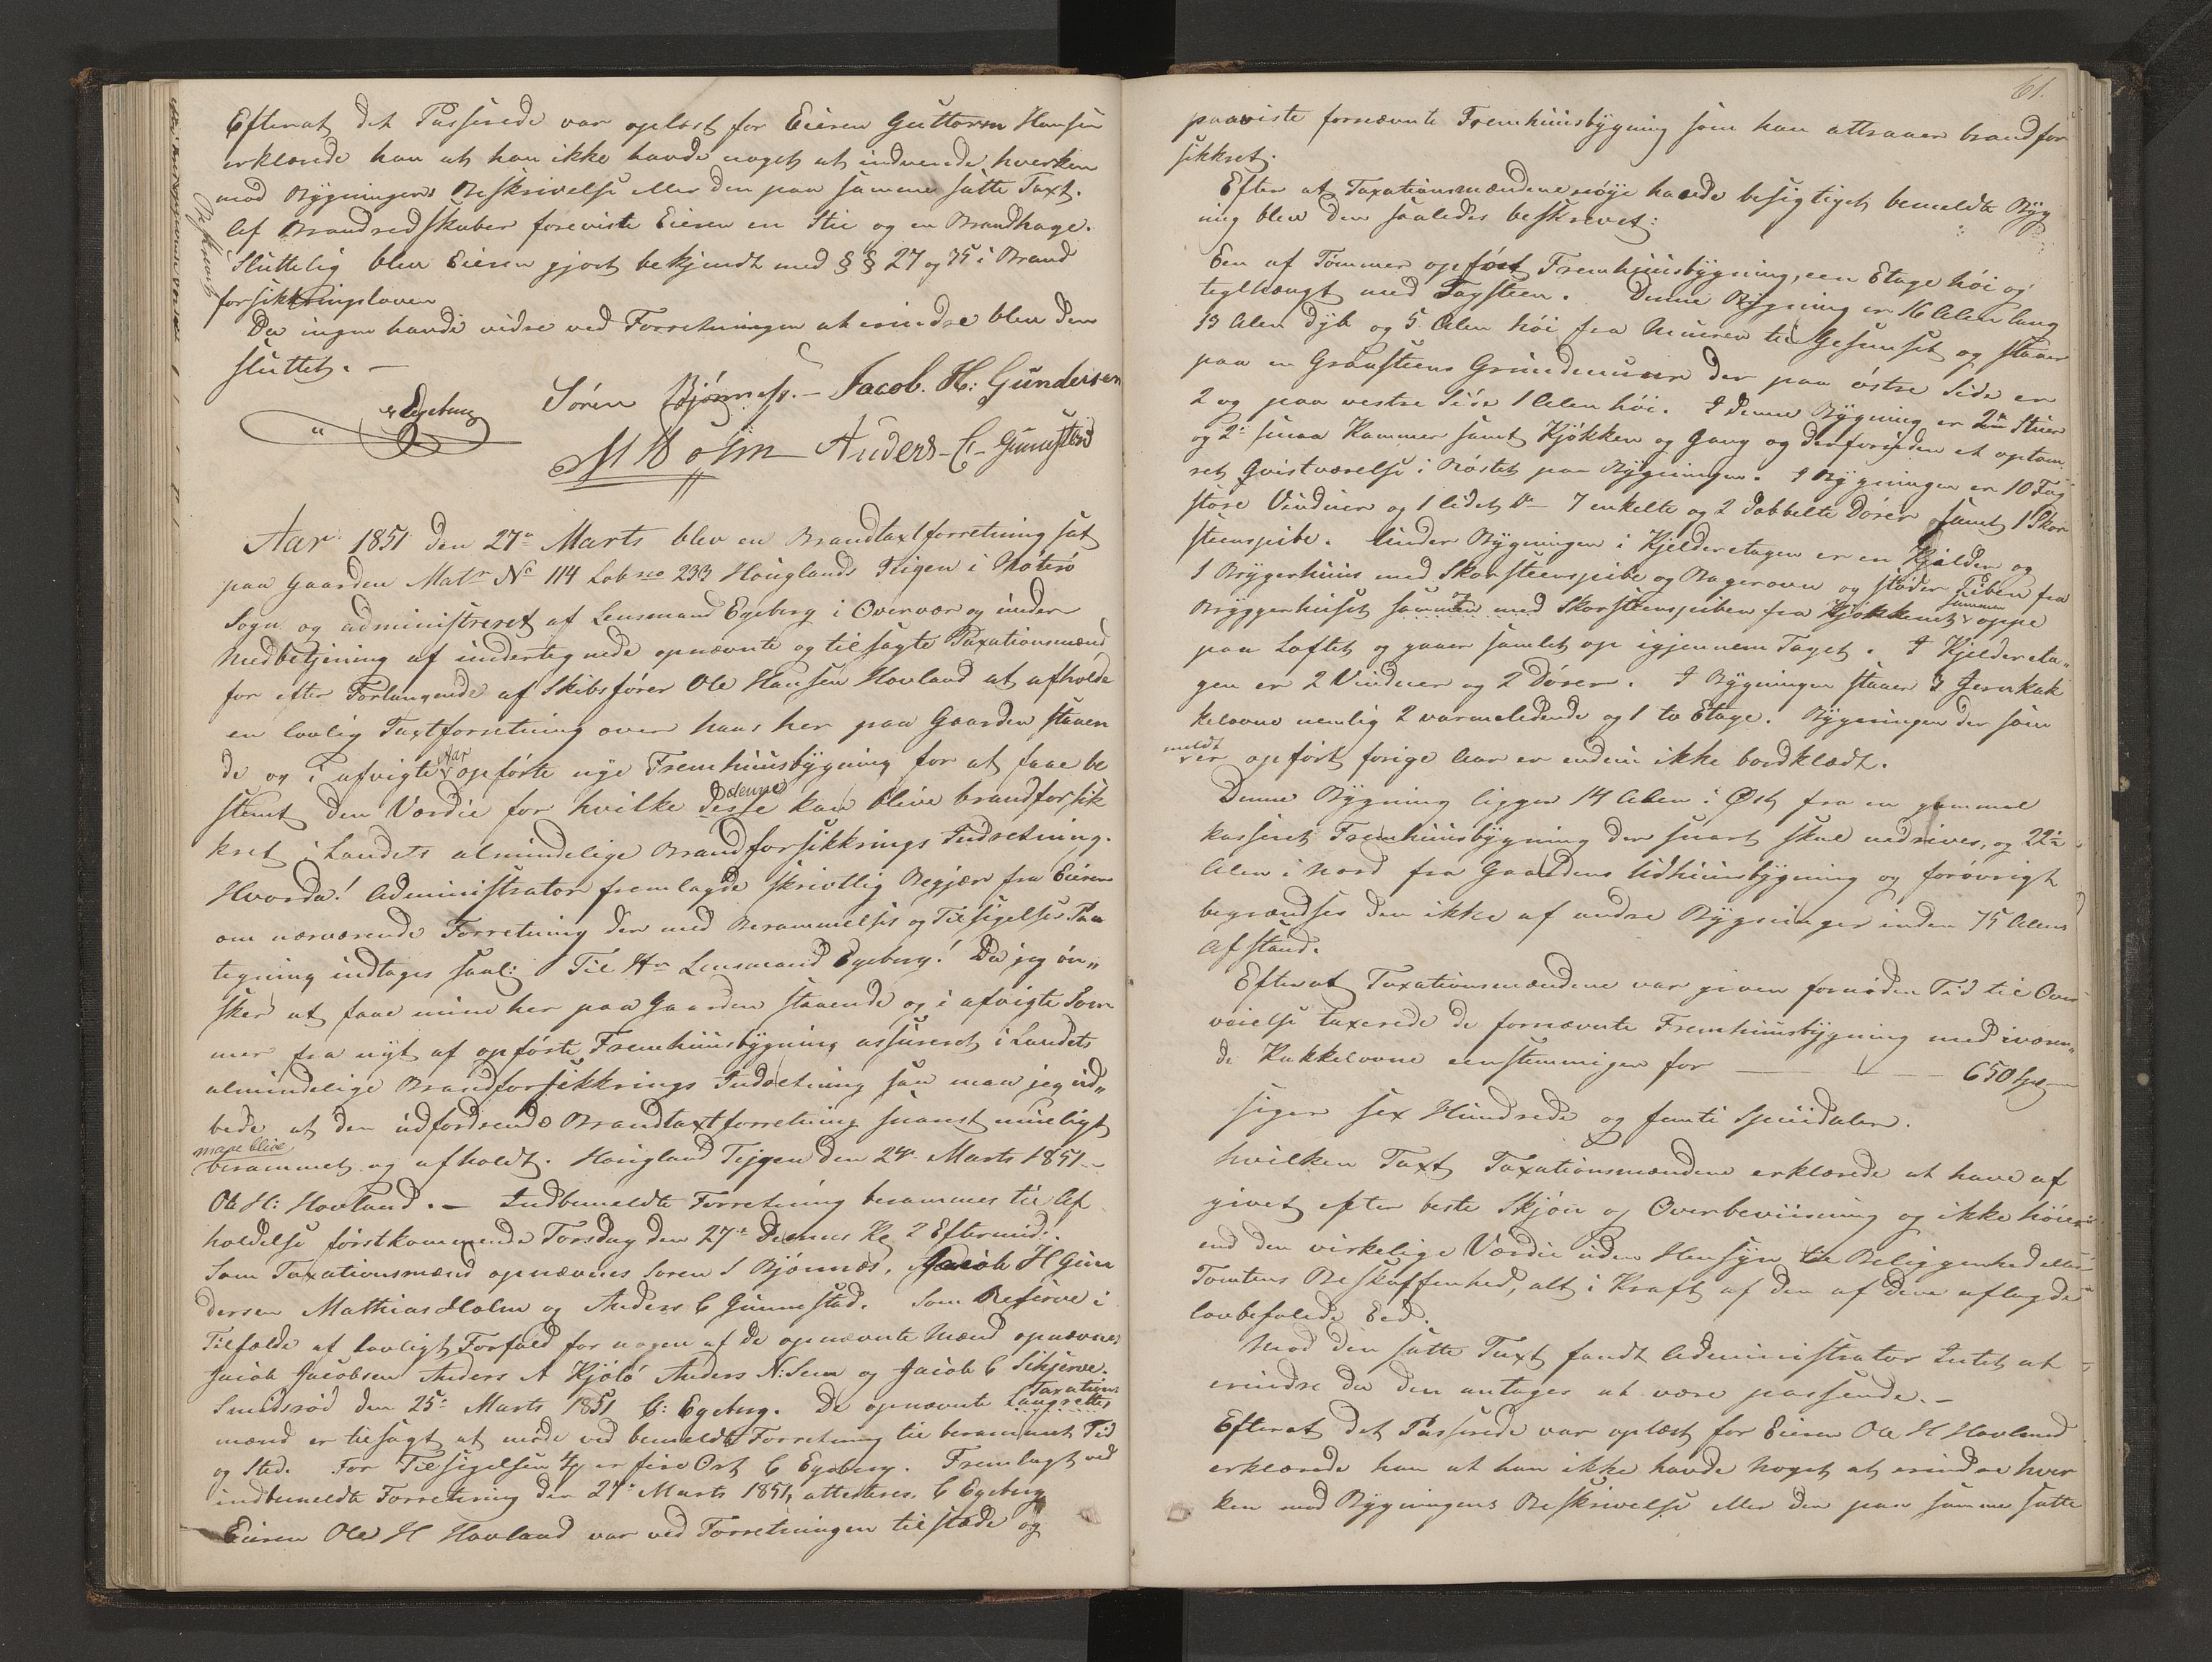 Efterat det Passerede var oplæst for Eieren Guttorm Hansen
erklærede han at han ikke havde noget at indvende hverken
mod Bygningens Beskrivelse eller den paa samme satte Taxt.
Af Brandredskaber foreviste Eieren en Stie og en Brandhage.
Sluttelig blev Eieren gjort bekjendt med § § 27 og 35 i Brand
forsikkringsloven
Da ingen havde videre ved Forretningen at erindre blev den
sluttet. –
Egeberg Søren Bjønness. – Jacob. H: Gundersen
M Holm Anders C. Gunnestad
Aar 1851 den 27de Marts blev en Brandtaxtforretning sat
paa Gaarden Matr No 114 Løbno 233 Houglands Teigen i Nøterø
Sogn og administreret af Lensmand Egeberg i Overvær og under
Medbetjening af undertegnede opnævnte og tilsagte Taxationsmænd
for efter Forlangende af Skibsfører Ole Hansen Hovland at afholde
en lovlig Taxtforretning over hans her paa Gaarden staaen
de og i afvigte Aar opførte nye Fremhuusbygning for at faae be
stemt den Værdie for hvilke disse denne kan blive brandforsik
kret i Landets almindelige Brandforsikkrings Indretning.
Hvorda! Administrator fremlagde skriftlig Begjær fra Eieren
om nærværende Forretning der med Berammelses og Tilsigelses Paa
tegning indtages saal: Til Hr Lensmand Egeberg! Da jeg øn„
sker at faae mine her paa Gaarden staaende og i afvigte Som
mer fra nyt af opførte Fremhuusbygning assureret i Landets
almindelige Brandforsikkrings Indretning saa maa jeg ud„
bede at den udfordrende Brandtaxtforretning snarest mueligt
maae blive
berammet og afholdt. Hougland Tejgen den 24de Marts 1851 –
Ole H: Hovland. – Indbemeldte Forretning berammes til Af
holdelse førstkommende Torsdag den 27de Dennes Kl 2 Eftermid:
Som Taxationsmænd opnævnes Søren S Bjønnes, Jacob H Gun
dersen Mathias Holm og Anders C Gunnestad. Som Reserve i
Tilfælde af lovligt Forfald for nogen af de opnævnte Mænd opnævnes
Jacob Jacobsen Anders A Kjølø Anders N: Sem og Jacob C Skjerve.
Smidsrød den 25de Marts 1851 C: Egeberg. De opnævnte Laugrettes Taxations
mænd er tilsagt at møde ved bemeldte Forretning til berammet Tid
og Sted. For Tilsigelsen er fire Ort C Egeberg. Fremlagt ved
indbemeldte Forretning den 27de Marts 1851, attesteres C Egeberg
Eieren Ole H Hovland var ved Forretningen tilstæde og
61.
paaviste fornævnte Fremhuusbygning som han attraaer brandfor
sikkret.
Efter at Taxationsmændene nøye havde besigtiget bemeldte Byg
ning blev den saaledes beskrevet:
Een af Tømmer opført Fremhuusbygning, een Etage høi og
teglhængt med Tagsteen. Denne Bygning er 16 Alen lang
13 Alen dyb og 5 Alen høi fra Muuren til Gesimset og staaer
paa en Graasteens Grundmuur der paa østre Side er
2 og paa vestre Side 1 Alen høi. I denne Bygning er 2de Stuer
og 2de smaa Kammer samt Kjøkken og Gang og derforuden et optøm
ret Qvistværelse i Røstet paa Bygningen. I Bygningen er 10 Fag
store Vinduer og 1 lidet Do 7 enkelte og 2 dobbelte Dører samt 1 Skor
steenspibe. Under Bygningen i Kjelderetagen er en Kjelder og
1 Bryggerhuus med Skorsteenspibe og Bagerovn og støder Piben fra
Bryggerhuset sammen med Skorsteenspiben fra Kjøkkenet sammen oppe
paa Loftet og gaaer samlet op igjennem Taget. I Kjeldereta„
gen er 2 Vinduer og 2 Dører. I Bygningen staaer 3 Jernkak
kelovne nemlig 2 varmeledende og 1 to Etage. Bygningen der som
meldt
er opført forige Aar er endnu ikke bordklædt.
Denne Bygning ligger 14 Alen i Øst fra en gammel
kasseret Fremhuusbygning der snart skal nedrives, og 22½
Alen i Nord fra Gaardens Udhuusbygning og forøvrigt
begrændses den ikke af andre Bygninger inden 75 Alens
Afstand.
Efterat Taxationsmændene var given fornøden Tid til Over
veielse taxerede de fornævnte Fremhuusbygning med iværen„
de Kakkelovne eenstemmigen for — — — 650 Spd
siger sex Hundrede og femti Speciedaler.
hvilken Taxt Taxationsmændene erklærede at have af
givet efter beste Skjøn og Overbeviisning og ikke høiere
end den virkelige Værdie uden Hensyn til Beliggenhed eller
Tomtens Beskaffenhed, alt i Kraft af den af dem aflagde
lovbefalede Eed.
Mod den satte Taxt fandt Administrator Intet at
erindre da den antages at være passende. –
Efterat det Passerede var oplæst for Eieren Ole H Hovland
erklærede han at han ikke havde noget at erindre hver
ken mod Bygningens Beskrivelse eller den paa samme satte